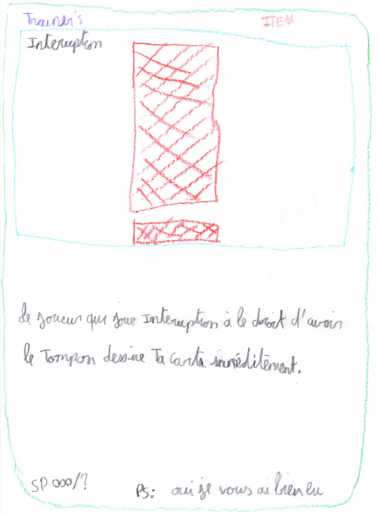 Trainer's ITEM
Interuption
le joueur qui joue Interuption à le droit d'avoir
le Tompon dessine Ta Carte imméditément.
SP 000/?
PS: oui je vous ai bien lu